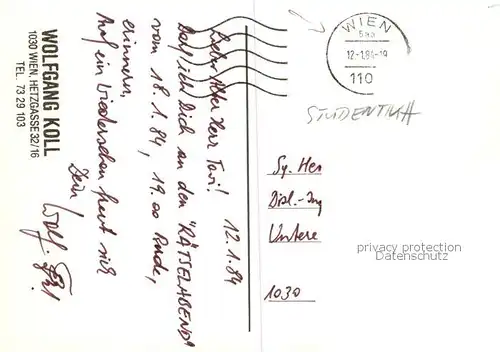 WOLFGANG KOLL
1030 WIEN, HETZGASSE 32/16
TEL. 73 29 103
12.1.84
Lieber Alter Herr Tovi!
Darf ich Dich an den "RÄTSELABEND"
vom 18.1.84, 19.00 Runde,
erinnern,
Auf ein Wiedersehen freut sich
Dein
Wolf.
WIEN
5aa
12.-1.84-19
110
STUDENTIKA
Sg. Herr
Dipl.-Ing
Untere
1030
privacy protection
Datenschutz